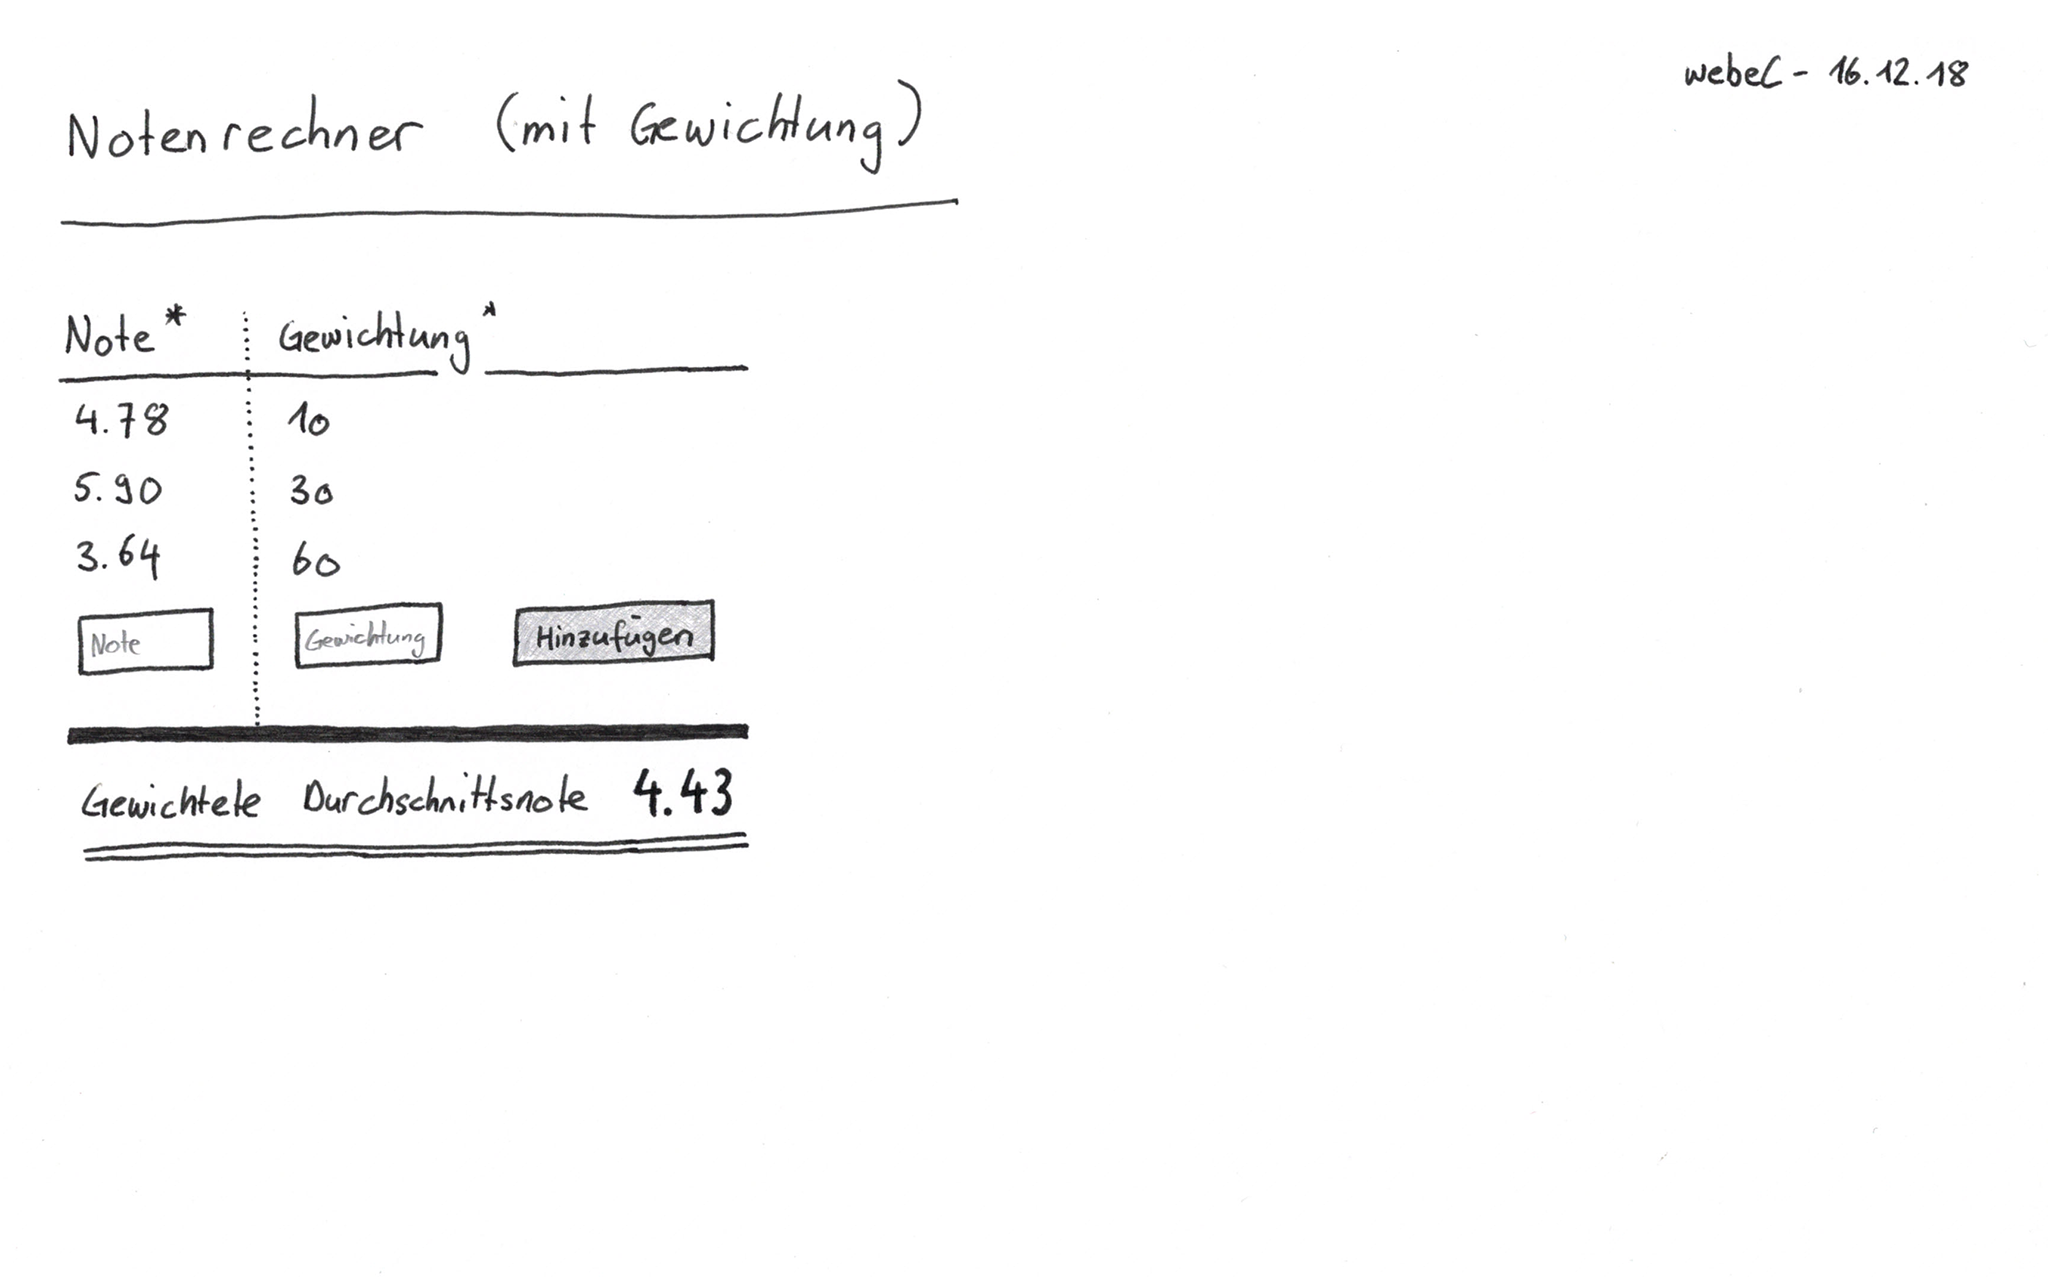 webeC - 16.12.18
Notenrechner (mit Gewichtung)
Note* Gewichtung*
4.78 10
5.90 30
3.64 60
Note Gewichtung Hinzufügen
Gewichtete Durchschnittsnote 4.43